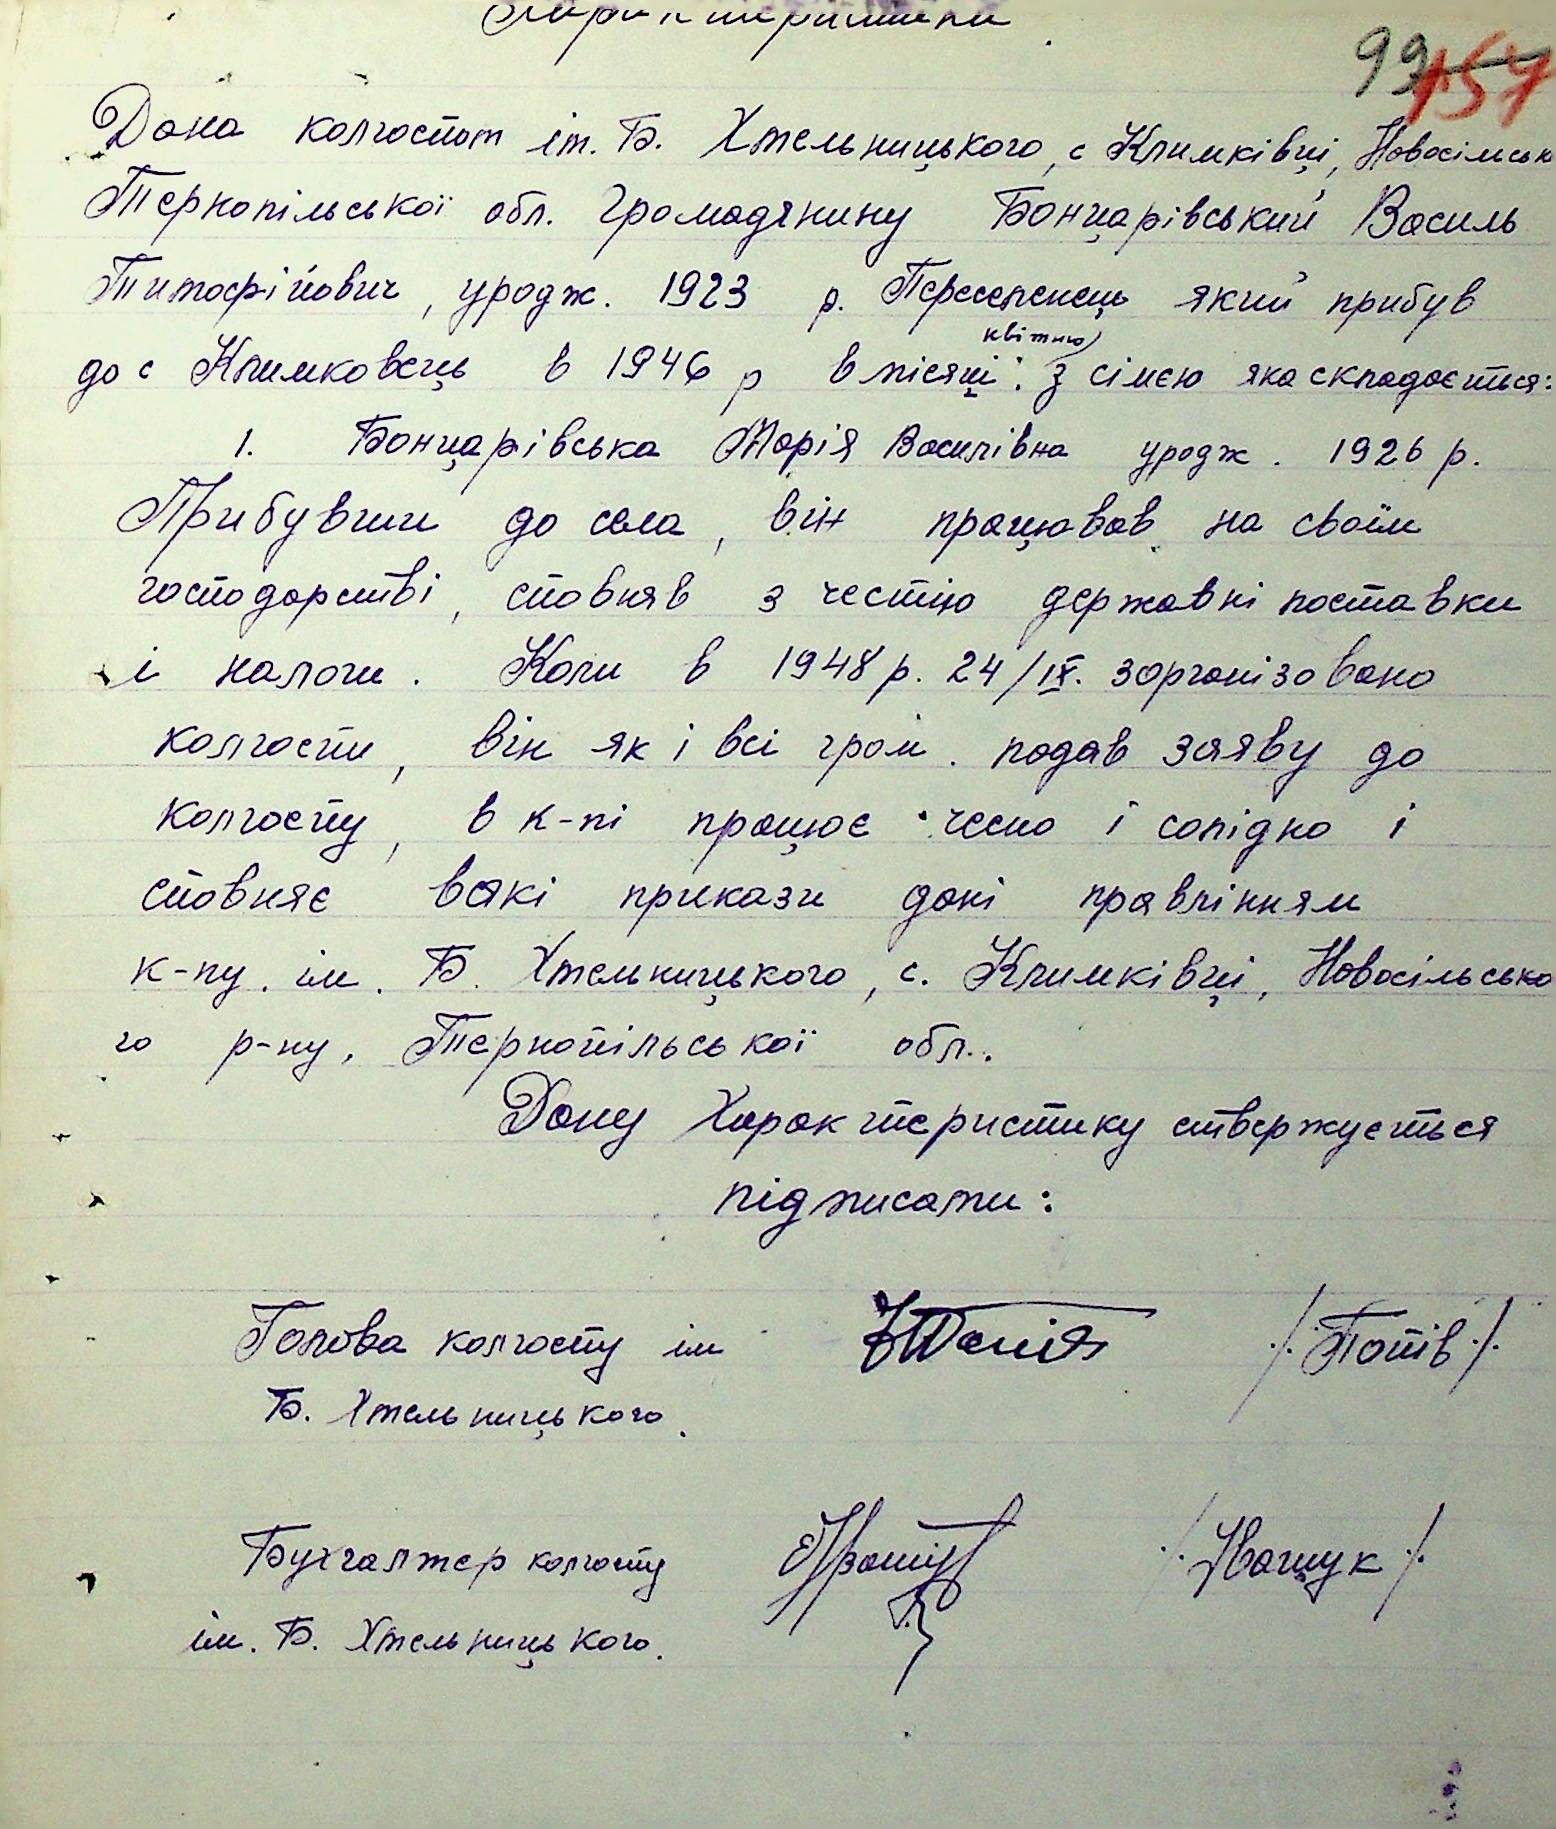 Характеристика.
99 157
Дана колгоспом ім. Б. Хмельницького, с Климківці, Новосільськ
Тернопільської обл. громадянину Бонцарівський Василь
Тимофійович, уродж. 1923 р. Переселенець який прибув
квітню
до с Климковець в 1946 р в місяці. З сімєю яка складається:
1. Бонцарівська Марія Василівна уродж. 1926 р.
Прибувши до села, він працював на своїм
господарстві, сповняв з честію державні поставки
і налоги. Коли в 1948 р. 24/IX. зорганізовано
колгосп, він як і всі гром. подав заяву до
колгоспу, в к-пі працює чесно і солідно і
сповняє всякі прикази дані правлінням
к-пу. ім. Б. Хмельницького, с. Климківці, Новосільсько
го р-ну, Тернопільської обл..
Дану Характеристику ствержується
підписами:
Голова колгоспу ім /Потів/
Б. Хмельницького.
Бухгалтер колгоспу /Іващук/
ім. Б. Хмельницького.